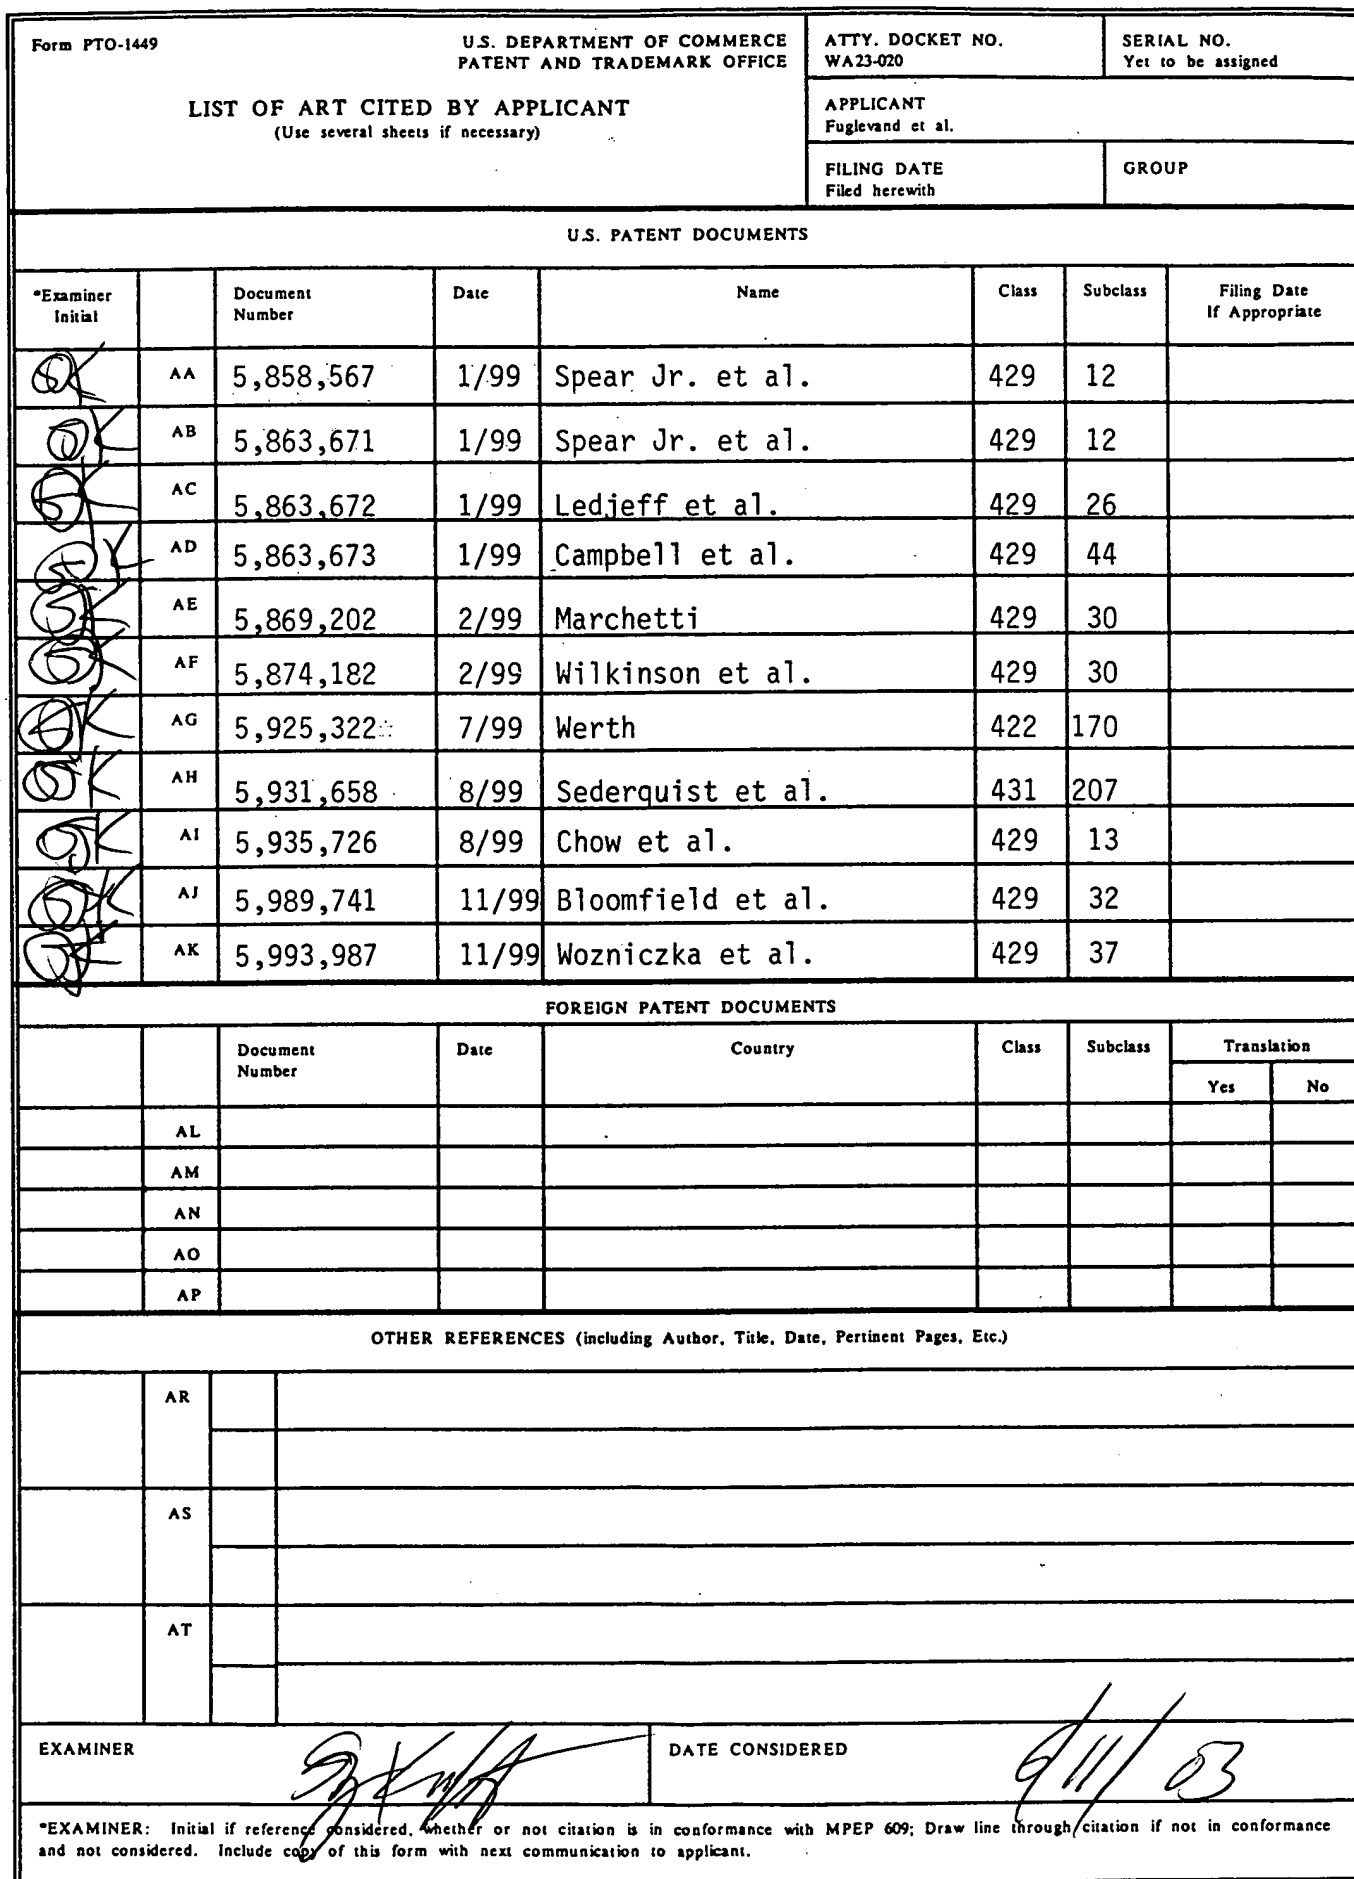 Form PTO-1449
U.S. DEPARTMENT OF COMMERCE
PATENT AND TRADEMARK OFFICE
ATTY. DOCKET NO.
WA23-020
SERIAL NO.
Yet to be assigned
LIST OF ART CITED BY APPLICANT
(Use several sheets if necessary)
APPLICANT
Fuglevand et al.
FILING DATE
Filed herewith
GROUP
U.S. PATENT DOCUMENTS
*Examiner Initial Document Number Date Name Class Subclass Filing Date If Appropriate
AA 5,858,567 1/99 Spear Jr. et al. 429 12
AB 5,863,671 1/99 Spear Jr. et al. 429 12
AC 5,863,672 1/99 Ledjeff et al. 429 26
AD 5,863,673 1/99 Campbell et al. 429 44
AE 5,869,202 2/99 Marchetti 429 30
AF 5,874,182 2/99 Wilkinson et al. 429 30
AG 5,925,322 7/99 Werth 422 170
AH 5,931,658 8/99 Sederquist et al. 431 207
AI 5,935,726 8/99 Chow et al. 429 13
AJ 5,989,741 11/99 Bloomfield et al. 429 32
AK 5,993,987 11/99 Wozniczka et al. 429 37
FOREIGN PATENT DOCUMENTS
Document Number Date Country Class Subclass Translation
Yes No
AL
AM
AN
AO
AP
OTHER REFERENCES (including Author, Title, Date, Pertinent Pages, Etc.)
AR
AS
AT
EXAMINER
DATE CONSIDERED
*EXAMINER: Initial if reference considered, whether or not citation is in conformance with MPEP 609; Draw line through citation if not in conformance
and not considered. Include copy of this form with next communication to applicant.